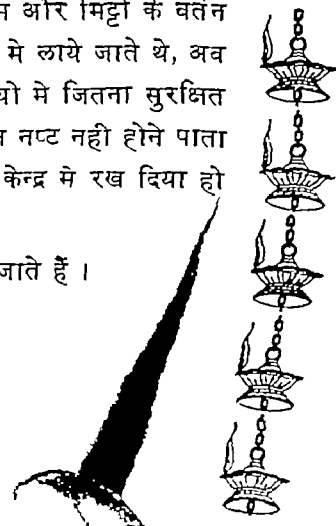 और मिट्टी के वर्तन
मे लाये जाते थे, अव
यो मे जितना सुरक्षित
नप्ट नही होने पाता
केन्द्र मे रख दिया हो
जाते हैं ।